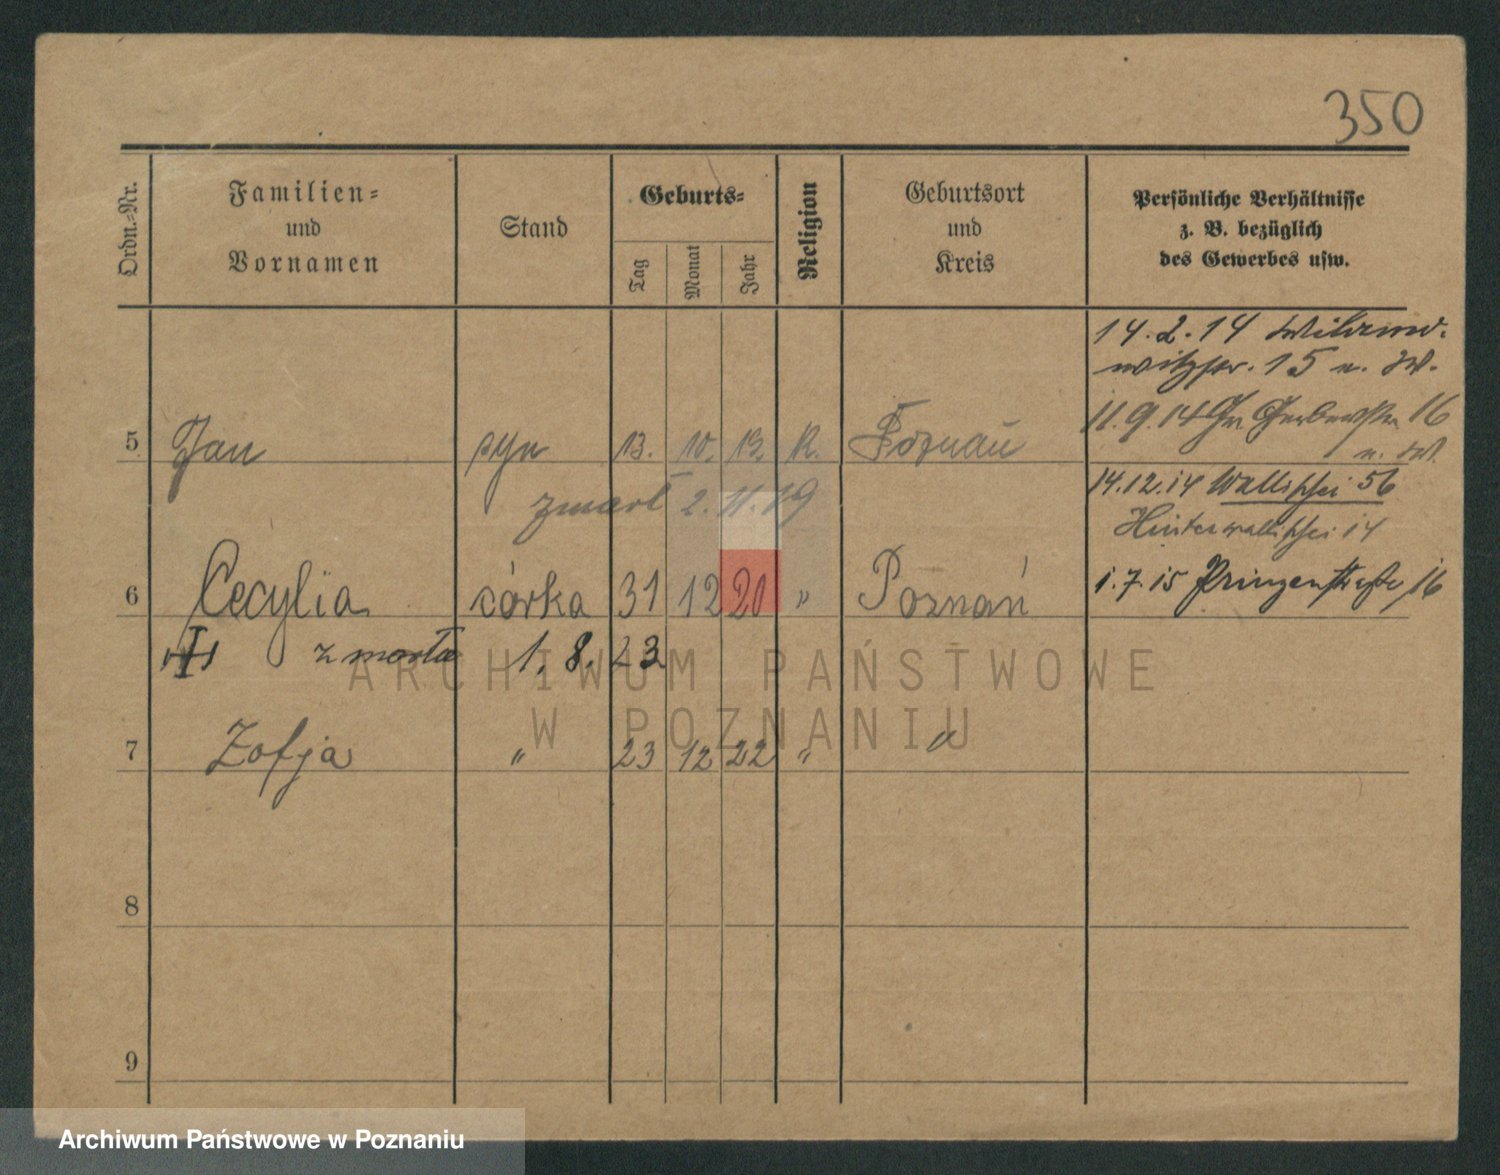 350
Ordn.-Nr.
Familien-
und
Vornamen
Stand
Geburts-
Tag
Monat
Jahr
Religion
Geburtsort
und
Kreis
Persönliche Verhältnisse
z. B. bezüglich
des Gewerbes usw.
14.2.14
15 u. W.
11.9.14 Gr Gerberstr. 16
u. W.
5 Jan syn 13. 10. 13. R. Poznań
14.12.14 Wallischei 56
zmarł 2.11.19
Hinterwallischei 14
1.7.15 Prinzenstraße 16
6 Cecylia córka 31 12 20 " Poznań
zmarła 1. 8. 23
7 Zofja " 23 12 22 " "
8
9
ARCHIWUM PAŃSTWOWE
W POZNANIU
Archiwum Państwowe w Poznaniu